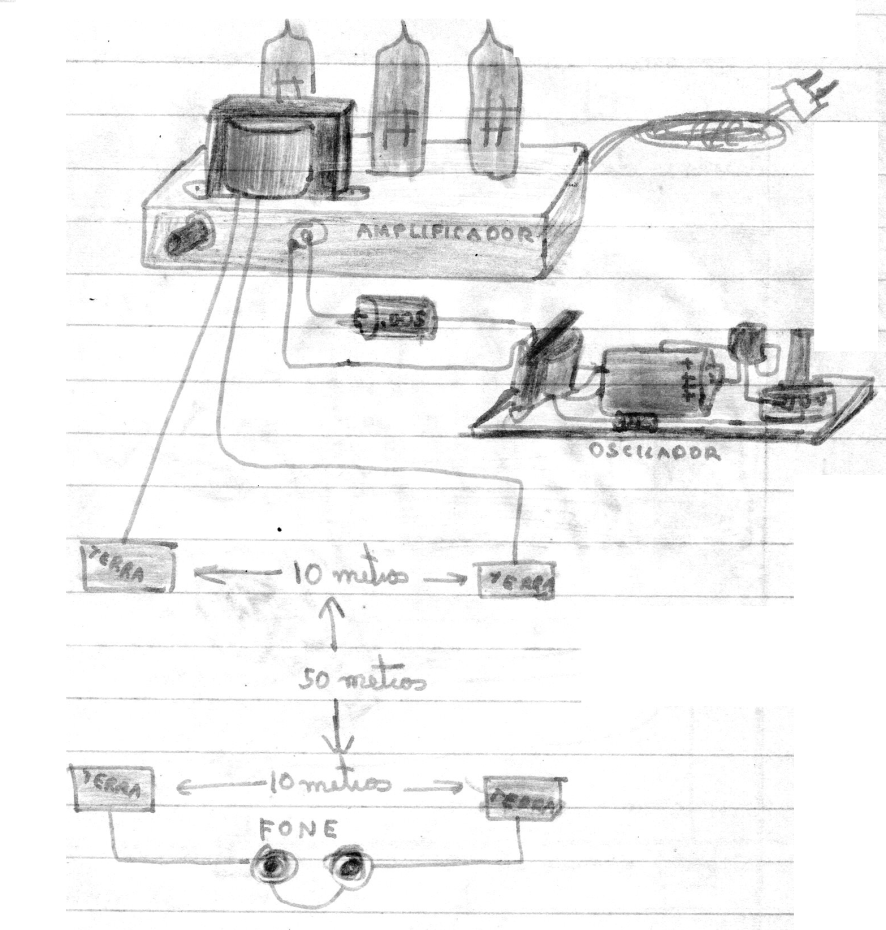 AMPLIFICADOR
.005
OSCILADOR
TERRA
10 metros
TERRA
50 metros
TERRA
10 metros
TERRA
FONE